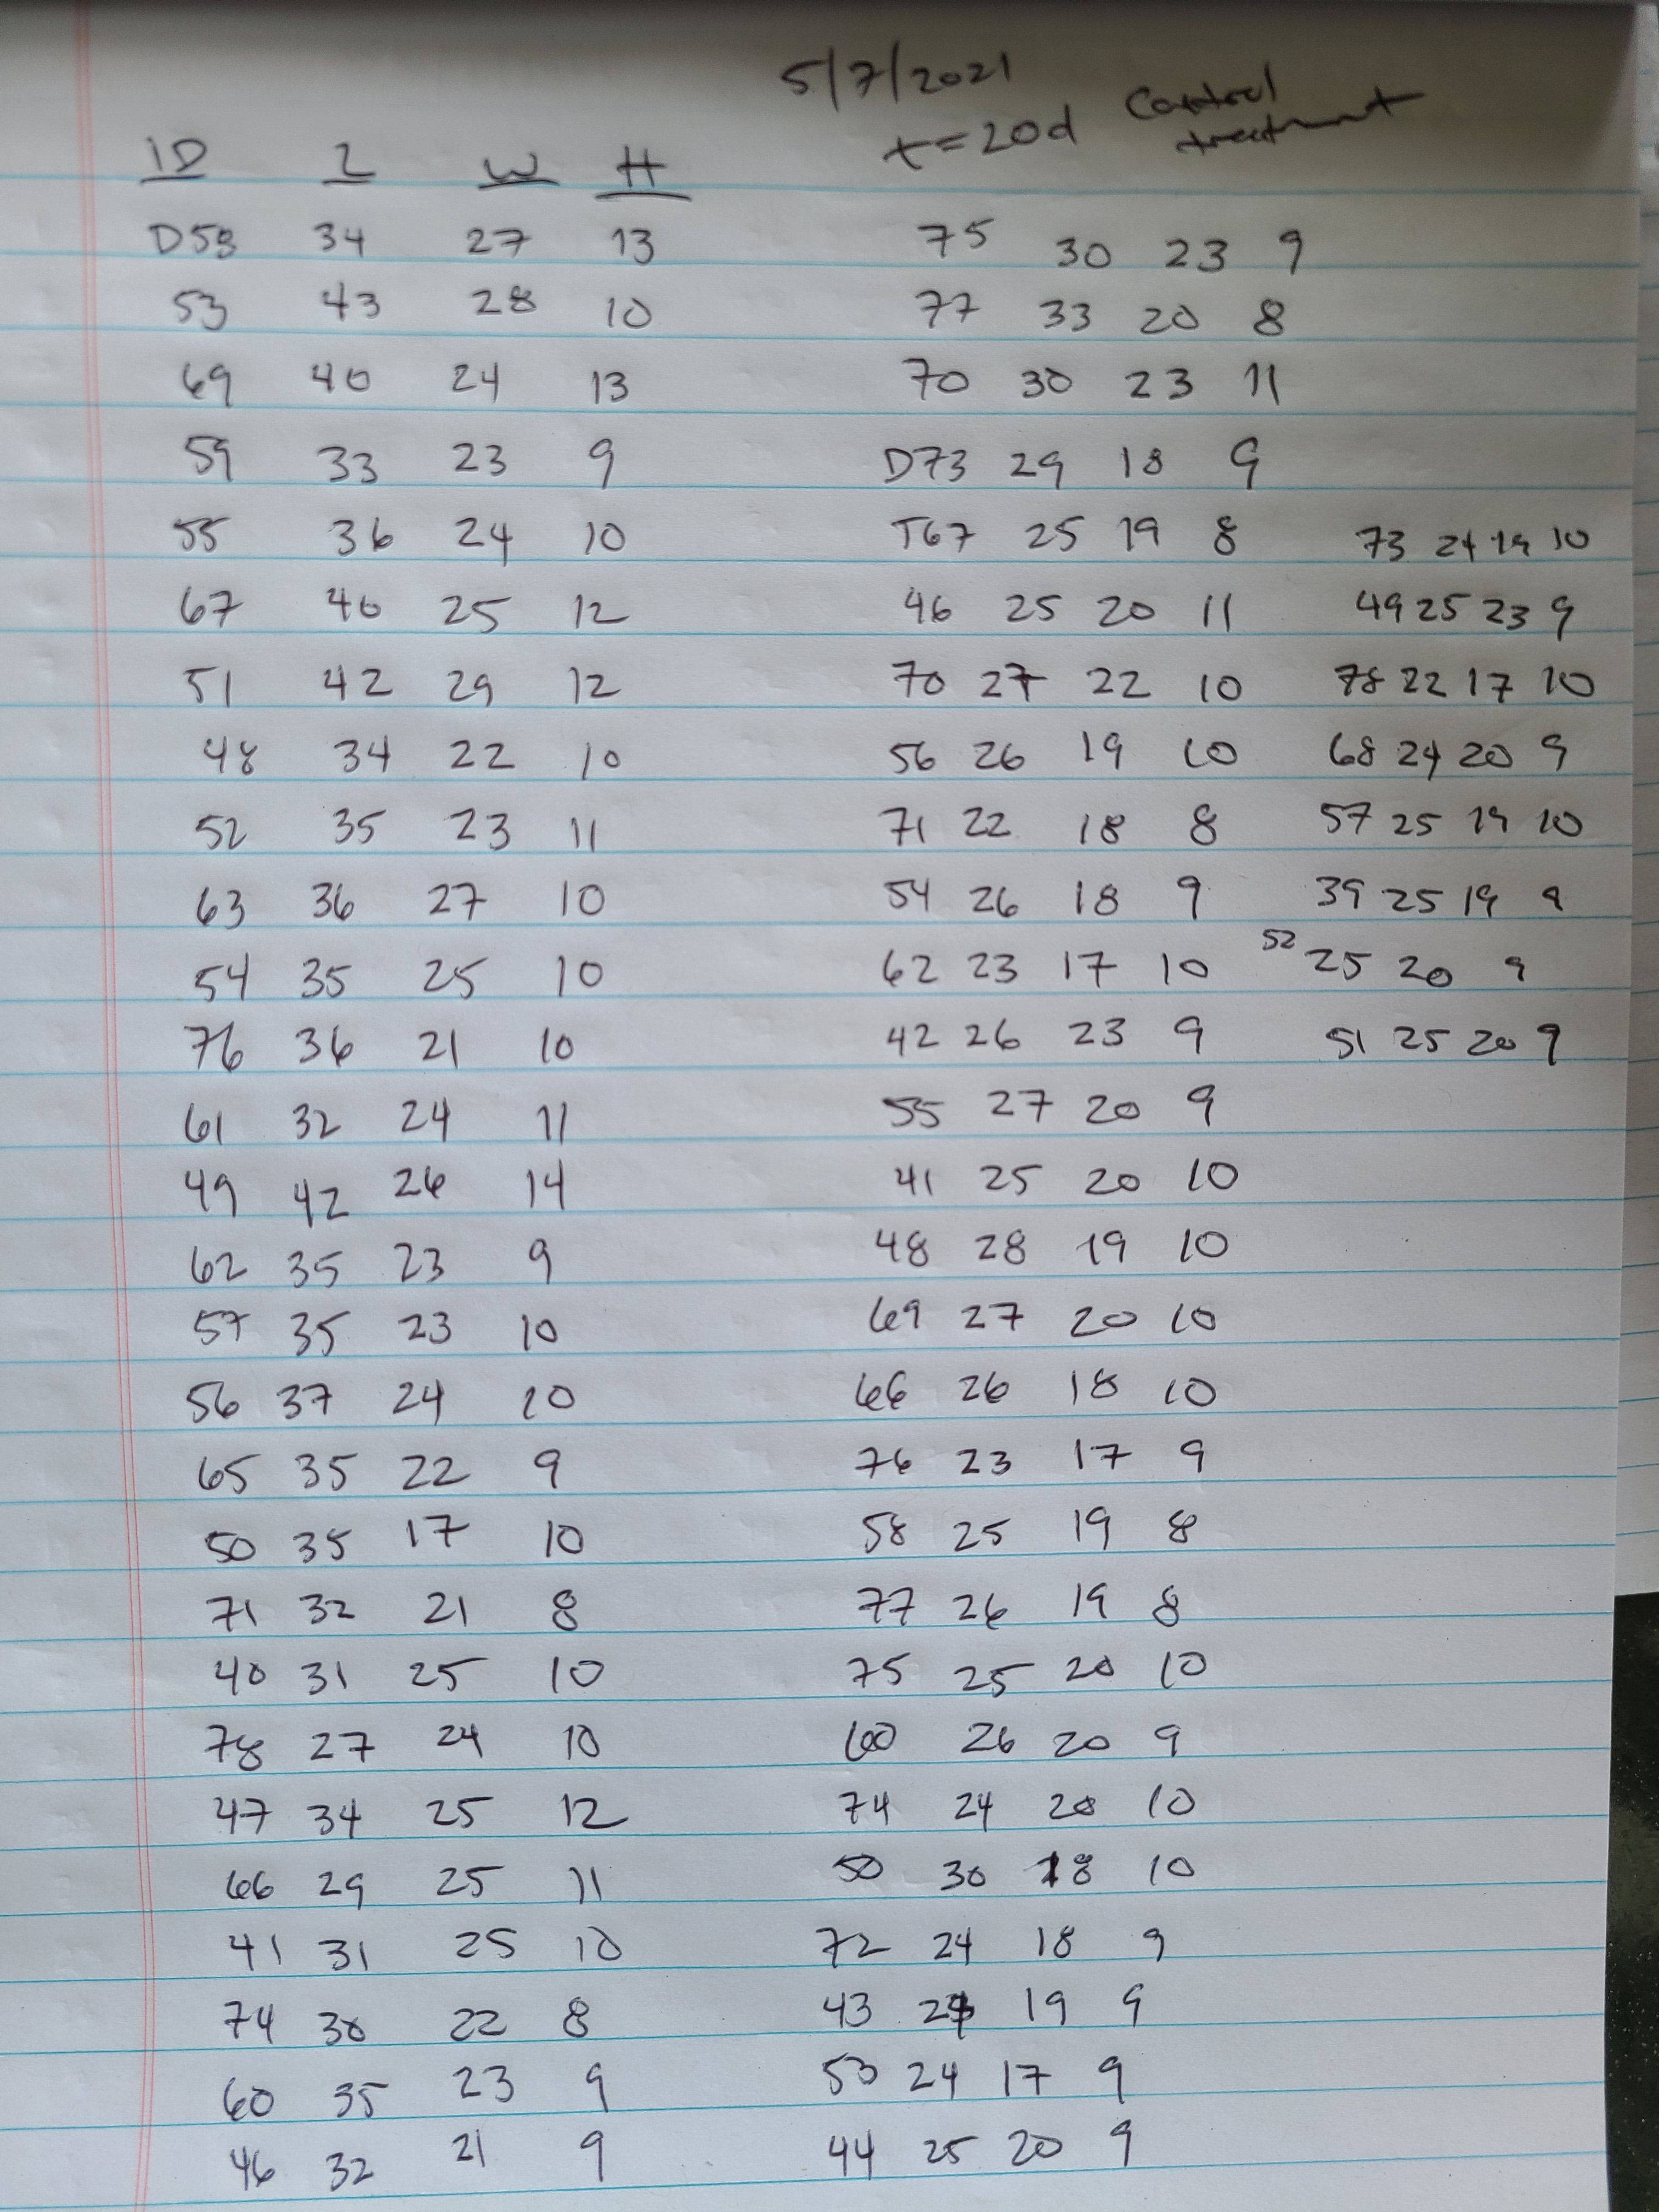 5/7/2021
t=20d Control treatment
ID L W H
D58 34 27 13
53 43 28 10
69 40 24 13
59 33 23 9
55 36 24 10
67 40 25 12
51 42 29 12
48 34 22 10
52 35 23 11
63 36 27 10
54 35 25 10
76 36 21 10
61 32 24 11
49 42 26 14
62 35 23 9
57 35 23 10
56 37 24 10
65 35 22 9
50 35 17 10
71 32 21 8
40 31 25 10
78 27 24 10
47 34 25 12
66 29 25 11
41 31 25 10
74 30 22 8
60 35 23 9
46 32 21 9
75 30 23 9
77 33 20 8
70 30 23 11
D73 29 18 9
T67 25 19 8
46 25 20 11
70 27 22 10
56 26 19 10
71 22 18 8
54 26 18 9
62 23 17 10
42 26 23 9
55 27 20 9
41 25 20 10
48 28 19 10
69 27 20 10
66 26 18 10
76 23 17 9
58 25 19 8
77 26 19 8
75 25 20 10
60 26 20 9
74 24 20 10
50 30 18 10
72 24 18 9
43 19 9
53 24 17 9
44 25 20 9
73 24 19 10
49 25 23 9
78 22 17 10
68 24 20 9
57 25 19 10
39 25 19 9
52 25 20 9
51 25 20 9